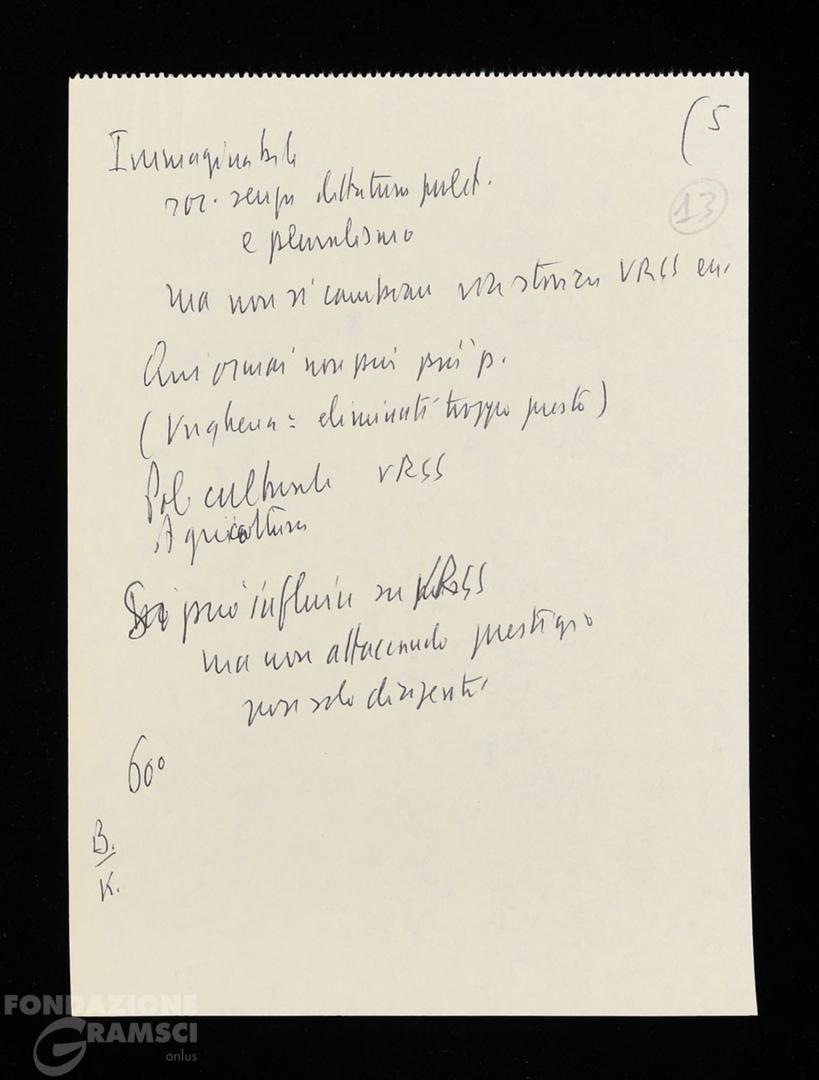 (5
13
Immaginabile
soc. senza dittatura prolet.
e pluralismo
ma non si cambiano storia URSS ecc.
Qui ormai non più più p.
(Ungheria = eliminati troppo presto)
Pol. culturale URSS
Agricoltura
Si può influire su URSS
ma non attaccando prestigio
non solo dirigenti
60°
B.
K.
FONDAZIONE
GRAMSCI
onlus